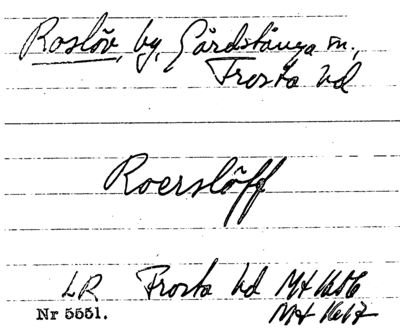 Roslöv, by, Gårdstånga sn.,
Frosta hd
Roerslöff
LR Frosta hd Mt
Nr 5551. Mt